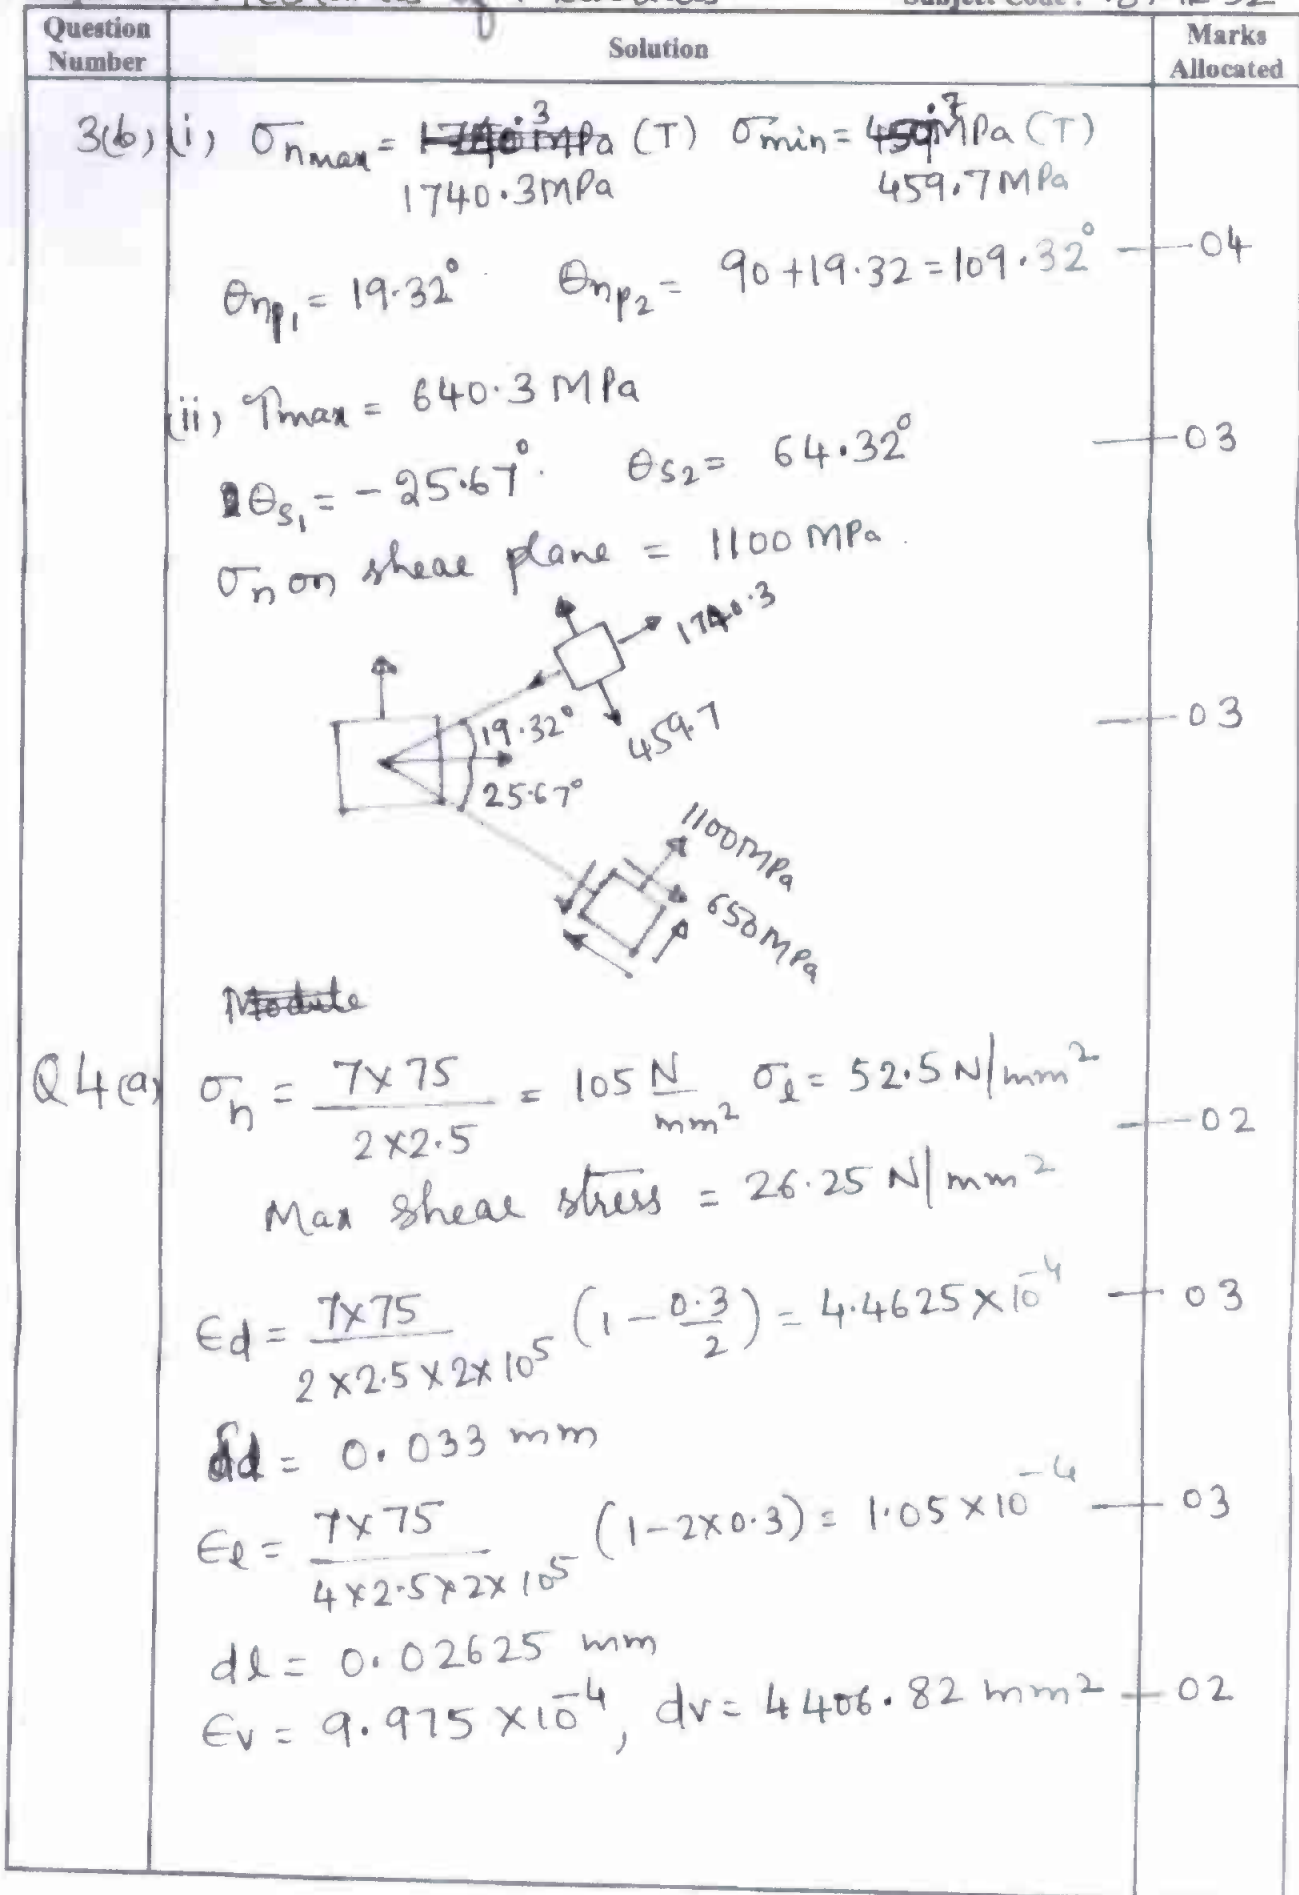 Question Number
Solution
Marks Allocated
3(b) (i) σn max = (T) σmin = (T)
1740.3 MPa 459.7 MPa
θnp₁ = 19.32° θnp₂ = 90 + 19.32 = 109.32° — 04
(ii) τmax = 640.3 MPa
θs₁ = - 25.67°. θs₂ = 64.32° — 03
σn on shear plane = 1100 MPa.
1740.3
459.7
19.32°
25.67°
— 03
1100 MPa
650 MPa
Module
Q4(a) σh = 7×75 / 2×2.5 = 105 N/mm² σl = 52.5 N/mm² — 02
Max shear stress = 26.25 N/mm²
Єd = 7×75 / 2×2.5×2×10⁵ (1 - 0.3/2) = 4.4625 × 10⁻⁴ — 03
δd = 0.033 mm
Єl = 7×75 / 4×2.5×2×10⁵ (1-2×0.3) = 1.05 × 10⁻⁴ — 03
dl = 0.02625 mm
Єv = 9.975 × 10⁻⁴, dv = 4406.82 mm² — 02